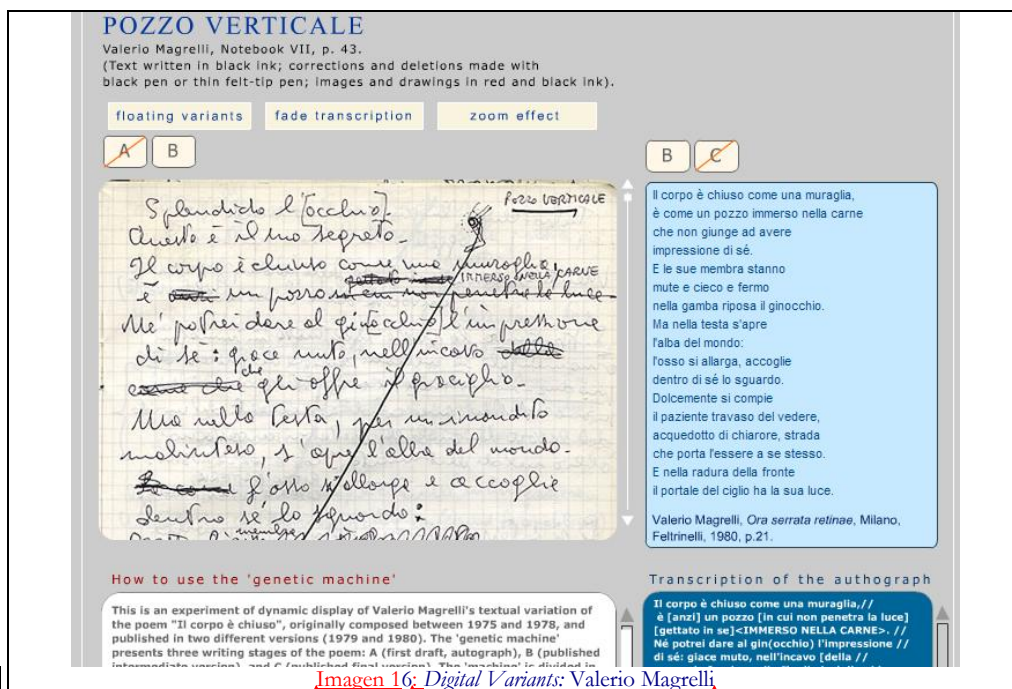 POZZO VERTICALE
Valerio Magrelli, Notebook VII, p. 43.
(Text written in black ink; corrections and deletions made with
black pen or thin felt-tip pen; images and drawings in red and black ink).
floating variants fade transcription zoom effect
A B
B C
POZZO VERTICALE
Splendido l'[occhio].
Questo è il suo segreto.
Il corpo è chiuso come una muraglia,
IMMERSO NELLA CARNE
è un pozzo in cui non penetra la luce
Né potrei dare al gin[occhio] l'impressione
di sé: giace muto, nell'incavo della
che
gli offre il
Ma nella testa, per un inaudito
malinteso, s'apre l'alba del mondo.
l'osso s'allarga e accoglie
dentro sé lo sguardo:
membra
Il corpo è chiuso come una muraglia,
è come un pozzo immerso nella carne
che non giunge ad avere
impressione di sé.
E le sue membra stanno
mute e cieco e fermo
nella gamba riposa il ginocchio.
Ma nella testa s'apre
l'alba del mondo:
l'osso si allarga, accoglie
dentro di sé lo sguardo.
Dolcemente si compie
il paziente travaso del vedere,
acquedotto di chiarore, strada
che porta l'essere a se stesso.
E nella radura della fronte
il portale del ciglio ha la sua luce.
Valerio Magrelli, Ora serrata retinae, Milano,
Feltrinelli, 1980, p.21.
How to use the 'genetic machine'
This is an experiment of dynamic display of Valerio Magrelli's textual variation of
the poem "Il corpo è chiuso", originally composed between 1975 and 1978, and
published in two different versions (1979 and 1980). The 'genetic machine'
presents three writing stages of the poem: A (first draft, autograph), B (published
intermediate version), and C (published final version). The 'machine' is divided in
Transcription of the authograph
Il corpo è chiuso come una muraglia,//
è [anzi] un pozzo [in cui non penetra la luce]
[gettato in se]<IMMERSO NELLA CARNE>. //
Né potrei dare al gin(occhio) l'impressione //
di sé: giace muto, nell'incavo [della //
Imagen 16: Digital Variants: Valerio Magrelli